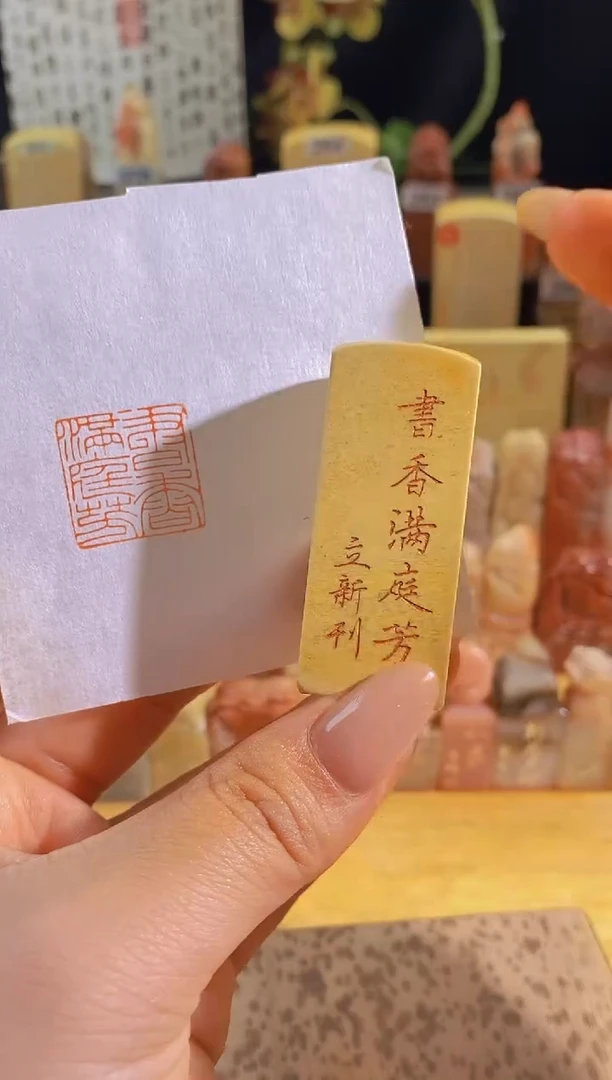 書香滿庭芳
立新刊
書香
滿庭芳